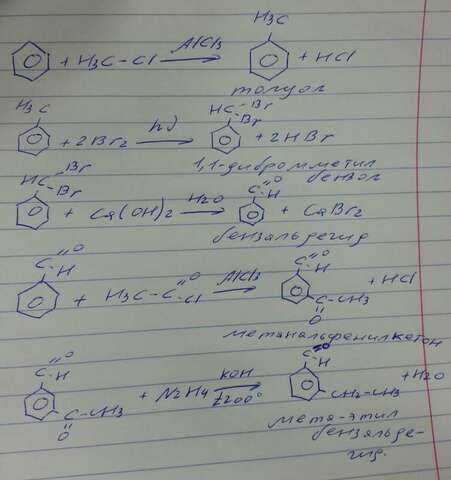 H3C
+ H3C-Cl AlCl3 → + HCl
толуол
H3C
+ 2Br2 hν → HC Br Br + 2HBr
1,1-дибромметил
бензол
HC Br Br
+ Ca(OH)2 H2O → C=O H + CaBr2
бензальдегид
C=O H
+ H3C-C=O Cl AlCl3 → C=O H C-CH3 O + HCl
метанальфенилкетон
C=O H
C-CH3 O + N2H4 KOH t200° → C=O H CH2-CH3 + H2O
мета-этил
бензальде-
гид.